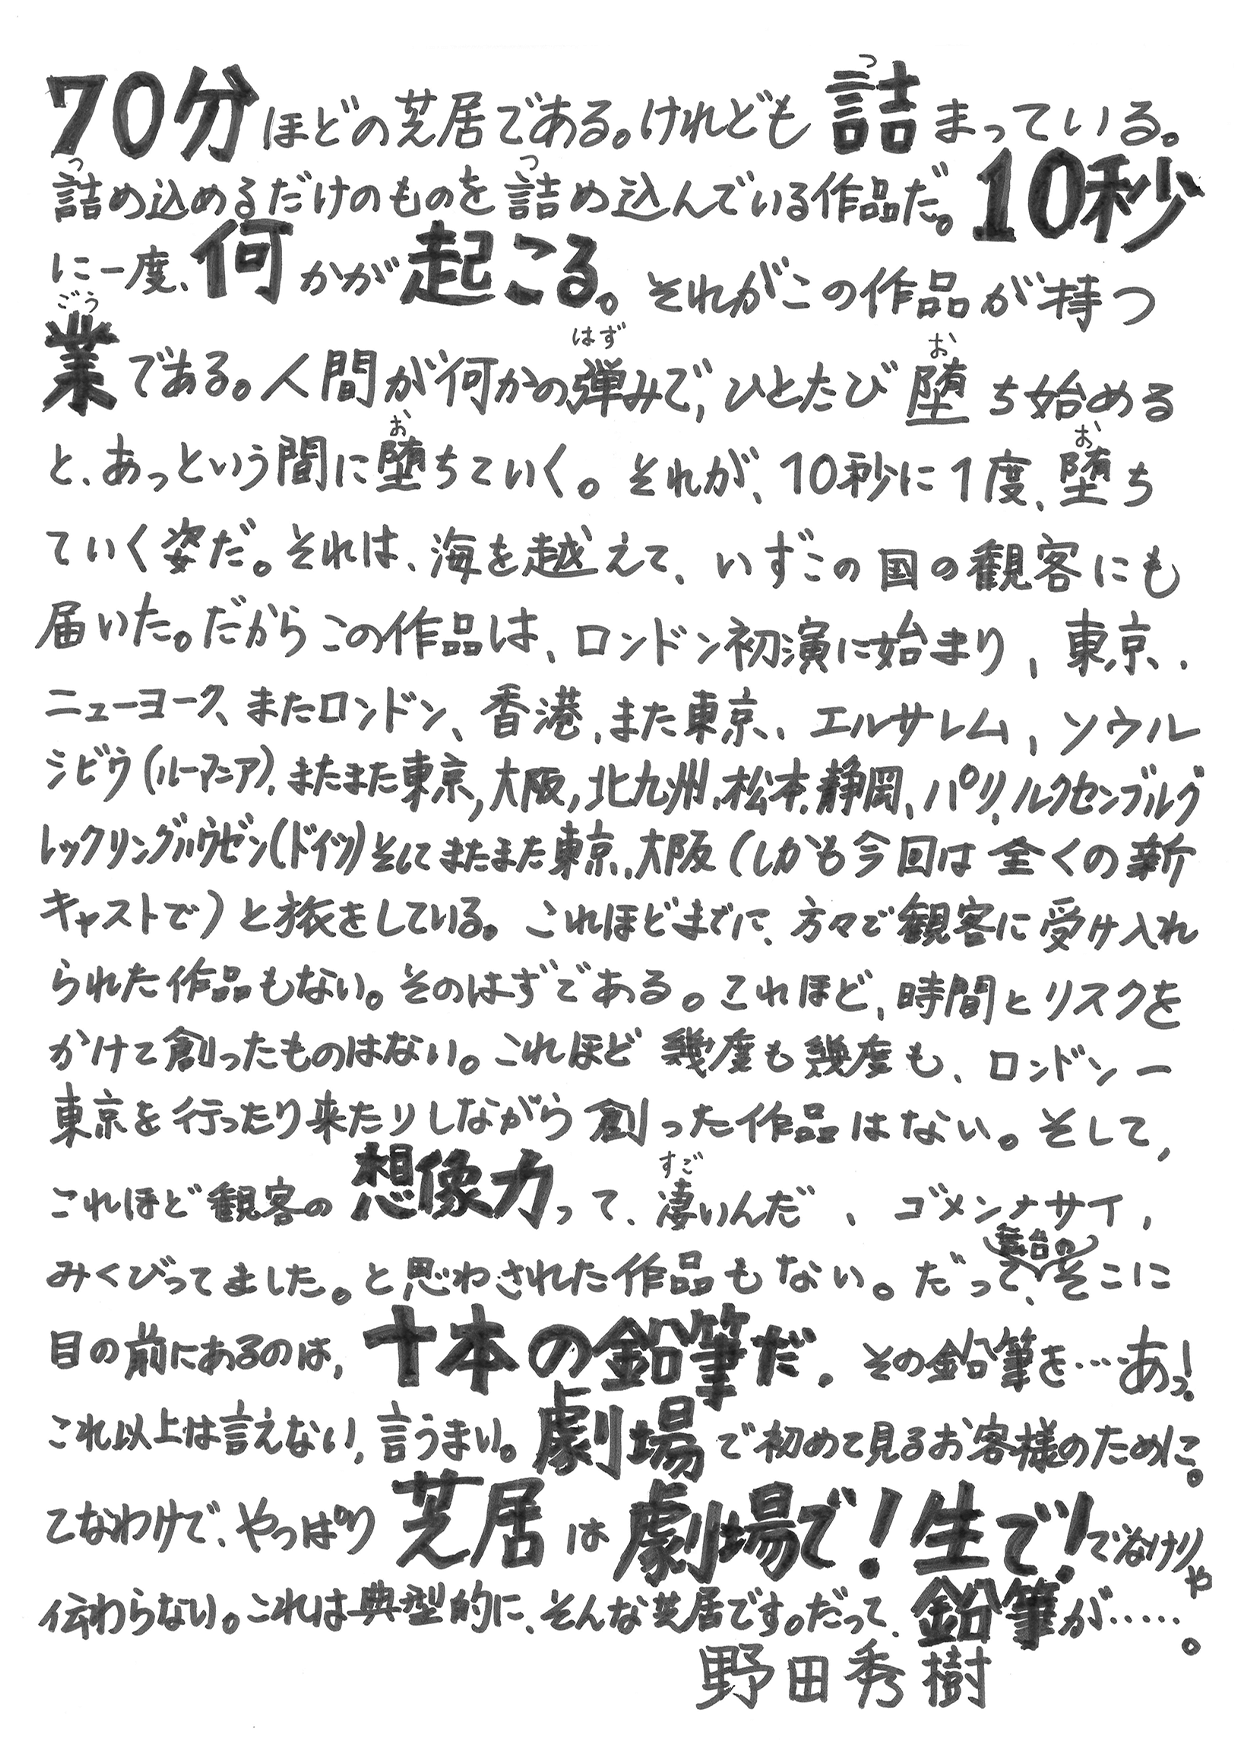 70分ほどの芝居である。けれども詰まっている。
詰め込めるだけのものを詰め込んでいる作品だ。10秒
に一度、何かが起こる。それがこの作品が持つ
業である。人間が何かの弾みで、ひとたび堕ち始める
と、あっという間に堕ちていく。それが、10秒に1度、堕ち
ていく姿だ。それは、海を越えて、いずこの国の観客にも
届いた。だからこの作品は、ロンドン初演に始まり、東京、
ニューヨーク、またロンドン、香港、また東京、エルサレム、ソウル
シビウ(ルーマニア)、またまた東京、大阪、北九州、松本、静岡、パリ、ルクセンブルグ
レックリングハウゼン(ドイツ)そしてまたまた東京、大阪(しかも今回は全くの新
キャストで)と旅をしている。これほどまでに、方々で観客に受け入れ
られた作品もない。そのはずである。これほど、時間とリスクを
かけて創ったものはない。これほど幾度も幾度も、ロンドンー
東京を行ったり来たりしながら創った作品はない。そして、
これほど観客の想像力って、凄いんだ、ゴメンナサイ、
みくびってました。と思わされた作品もない。だって、舞台のそこに
目の前にあるのは、十本の鉛筆だ。その鉛筆を…あっ!
これ以上は言えない、言うまい。劇場で初めて見るお客様のために。
てなわけで、やっぱり芝居は劇場で!生で!でなけりゃ
伝わらない。これは典型的に、そんな芝居です。だって、鉛筆が……。
野田秀樹